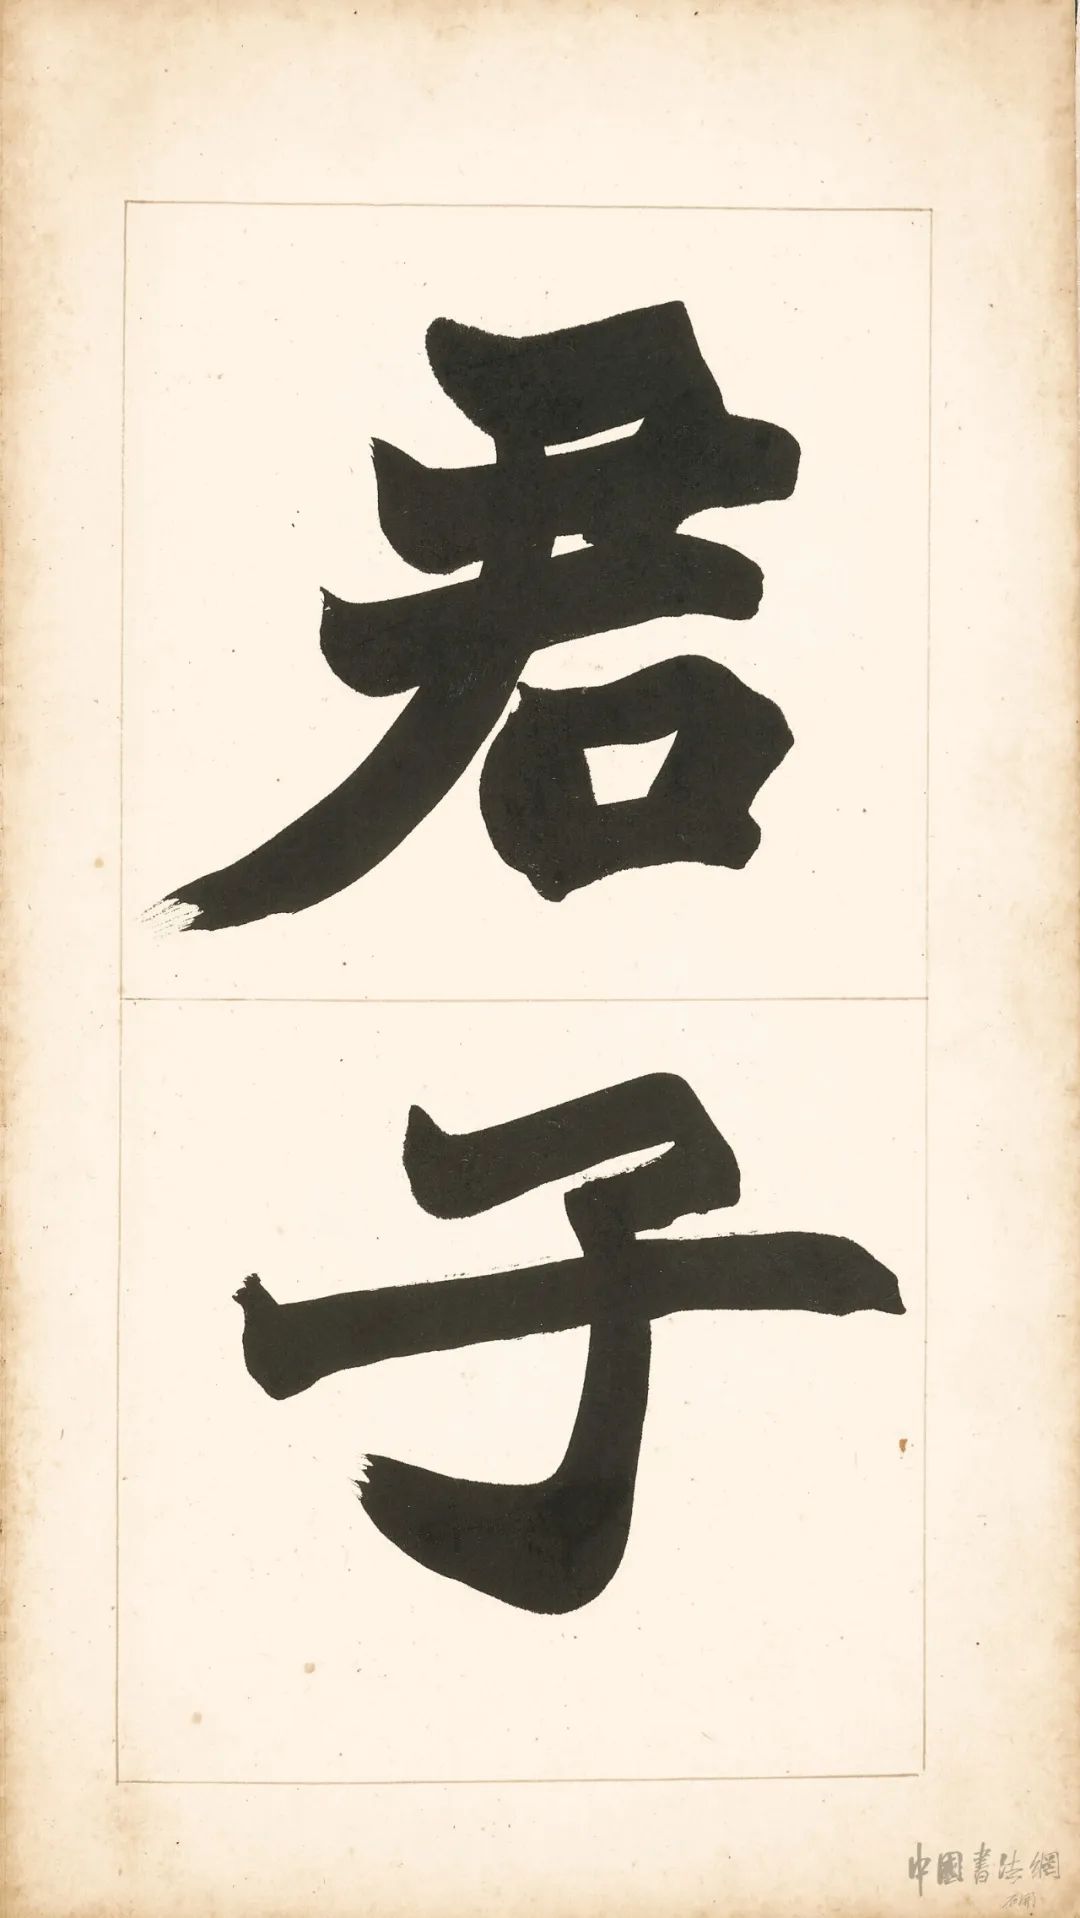 君
子
中國書法網